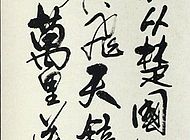 从楚國
飛天鏡
萬里送